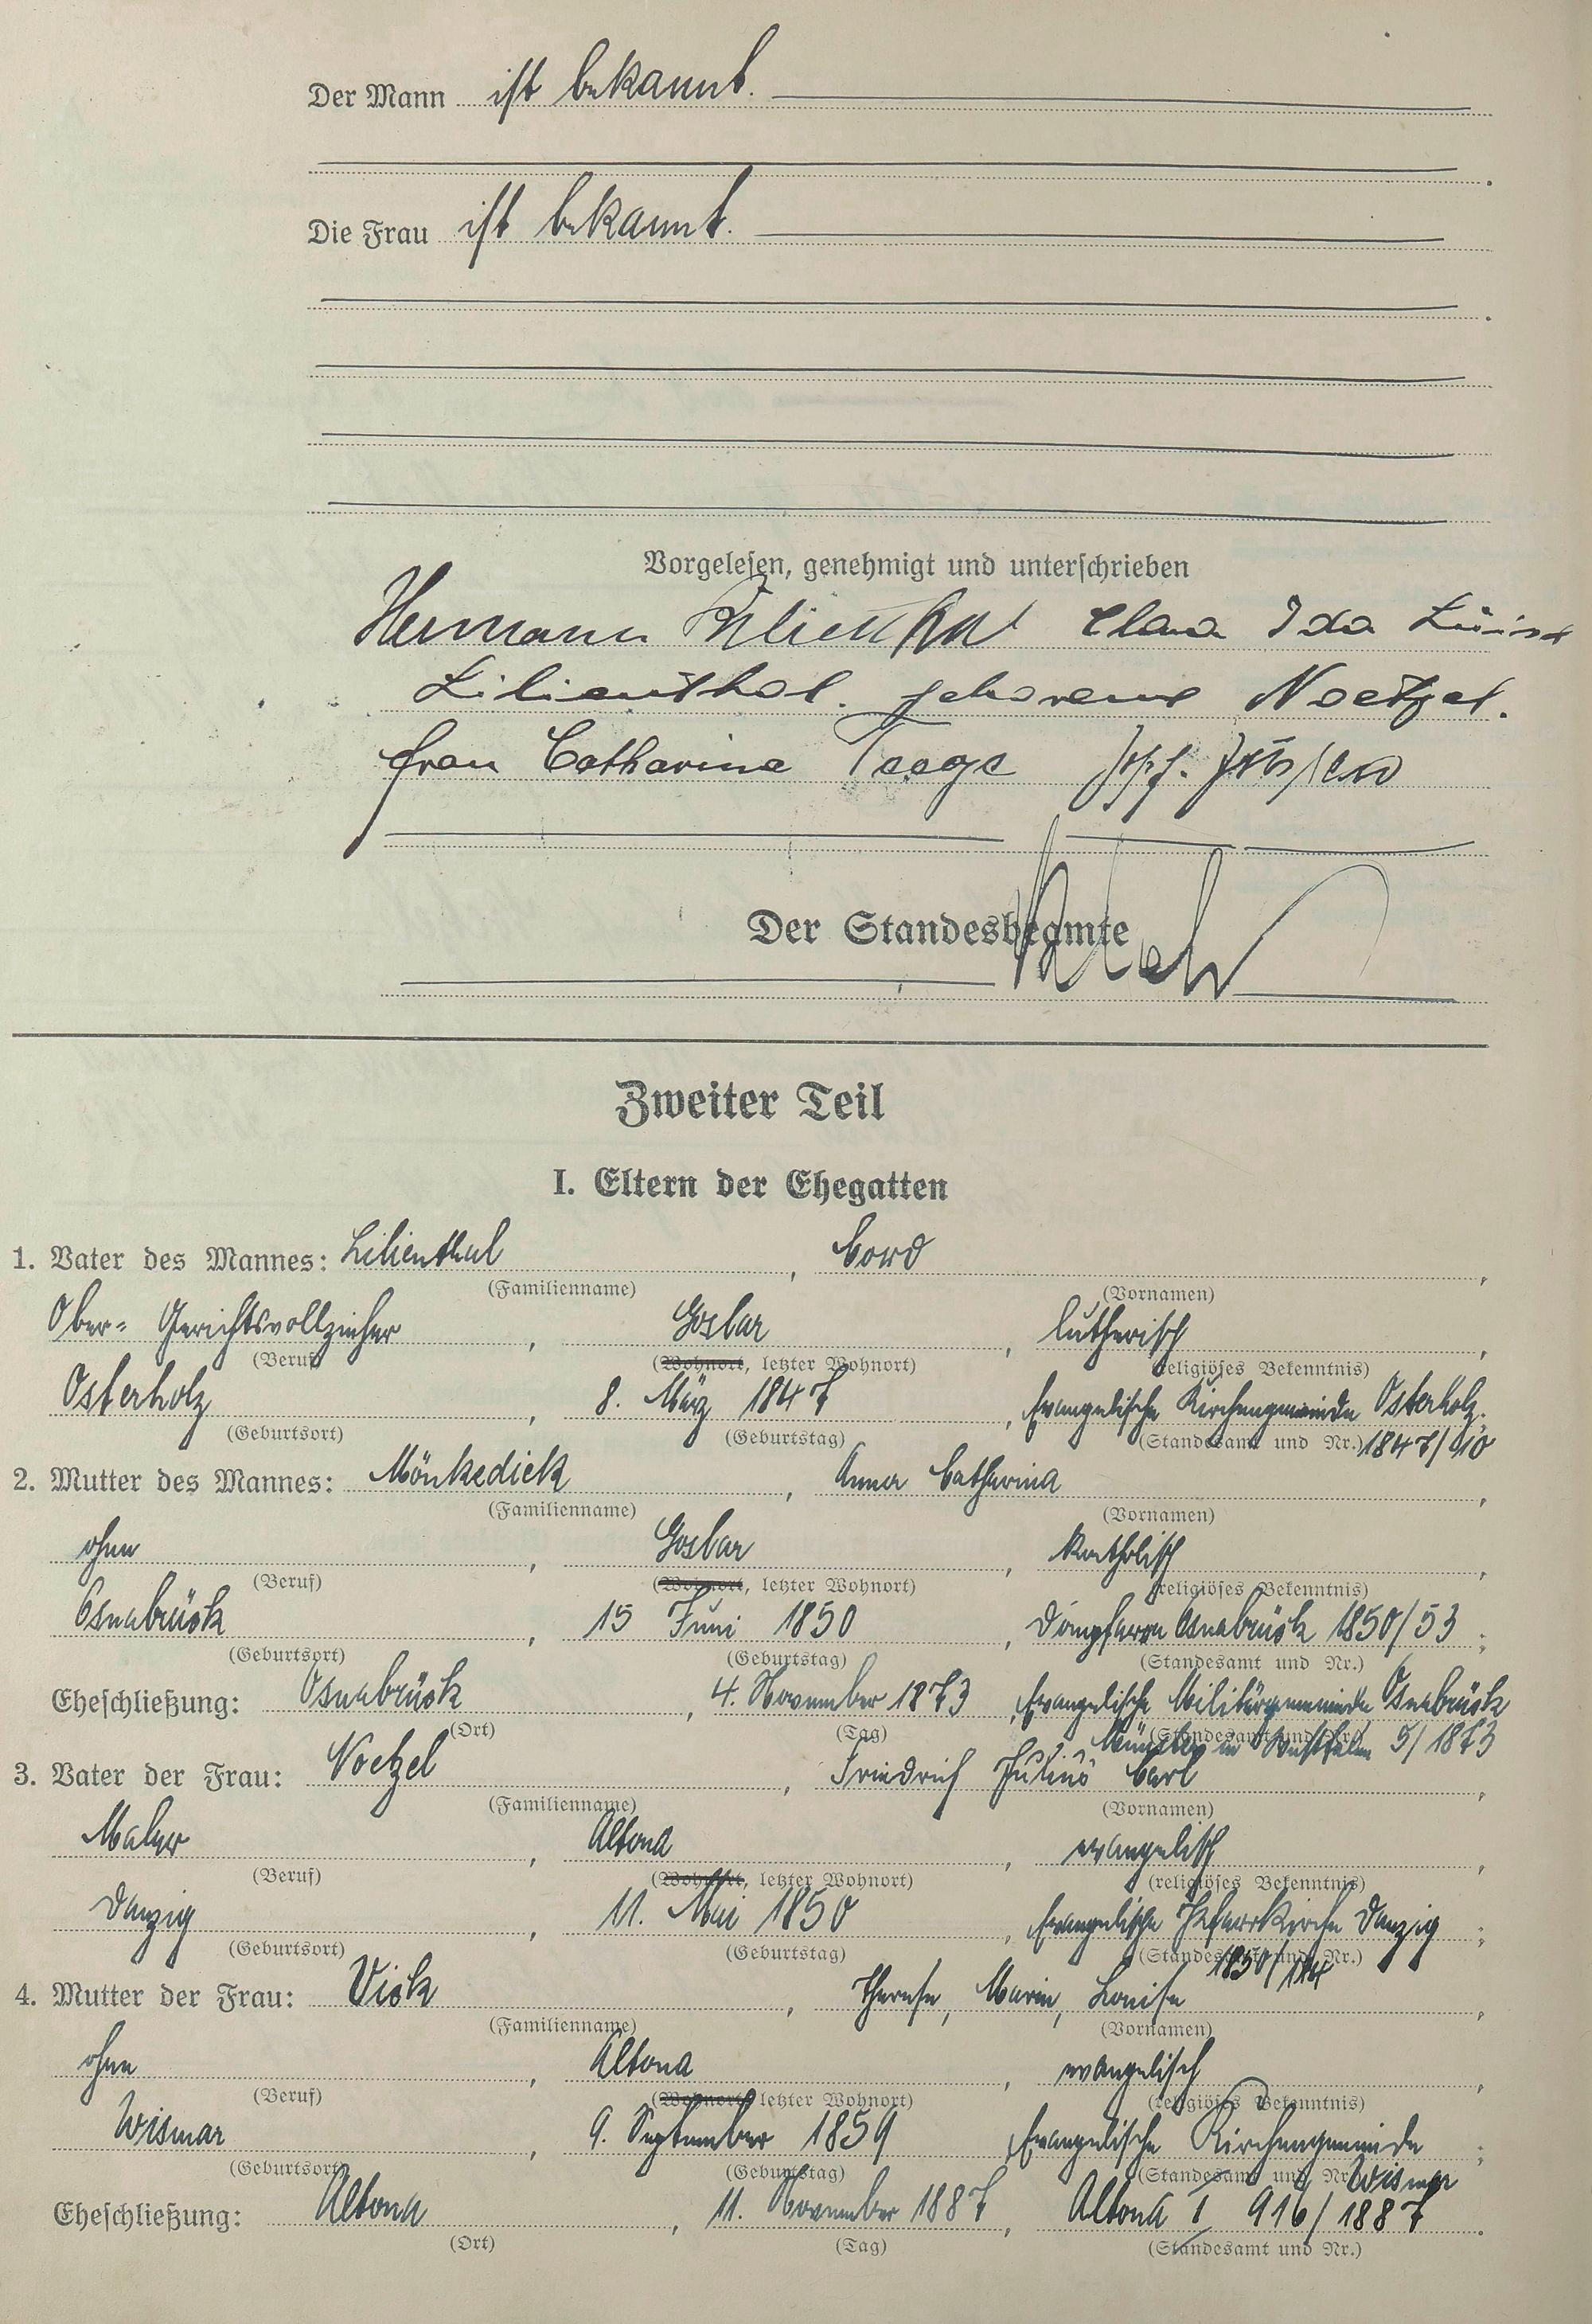 Der Mann ist bekannt.
Die Frau ist bekannt.
Vorgelesen, genehmigt und unterschrieben
Hermann Lilienthal Clara Ida Luise
Lilienthal. geborene Noetzel.
Frau Catharina Teege
Der Standesbeamte
Zweiter Teil
I. Eltern der Ehegatten
1. Vater des Mannes: Lilienthal, Cord,
(Familienname) (Vornamen)
Ober-Gerichtsvollzieher, Goslar, lutherisch,
(Beruf) (Wohnort, letzter Wohnort) (religiöses Bekenntnis)
Osterholz, 8. März 1847, Evangelische Kirchengemeinde Osterholz;
(Geburtsort) (Geburtstag) (Standesamt und Nr.) 1847/
2. Mutter des Mannes: Mönkedieck, Anna Catharina,
(Familienname) (Vornamen)
ohne, Goslar, katholisch,
(Beruf) (Wohnort, letzter Wohnort) (religiöses Bekenntnis)
Osnabrück, 15 Juni 1850, Dompfarre Osnabrück 1850/53;
(Geburtsort) (Geburtstag) (Standesamt und Nr.)
Eheschließung: Osnabrück, 4. November 1873, Evangelische Militärgemeinde Osnabrück
(Ort) (Tag) (Standesamt und Nr.) Münster in Westfalen 5/1873
3. Vater der Frau: Noetzel, Friedrich Julius Carl,
(Familienname) (Vornamen)
Maler, Altona, evangelisch,
(Beruf) (Wohnort, letzter Wohnort) (religiöses Bekenntnis)
Danzig, 11. Mai 1850, Evangelische Pfarrkirche Danzig;
(Geburtsort) (Geburtstag) (Standesamt und Nr.) 1850/
4. Mutter der Frau: Vick, Therese, Marie, Louise,
(Familienname) (Vornamen)
ohne, Altona, evangelisch,
(Beruf) (Wohnort, letzter Wohnort) (religiöses Bekenntnis)
Wismar, 9. September 1859, Evangelische Kirchengemeinde;
(Geburtsort) (Geburtstag) (Standesamt und Nr.) Wismar
Eheschließung: Altona, 11. November 1887, Altona I 916/1887.
(Ort) (Tag) (Standesamt und Nr.)